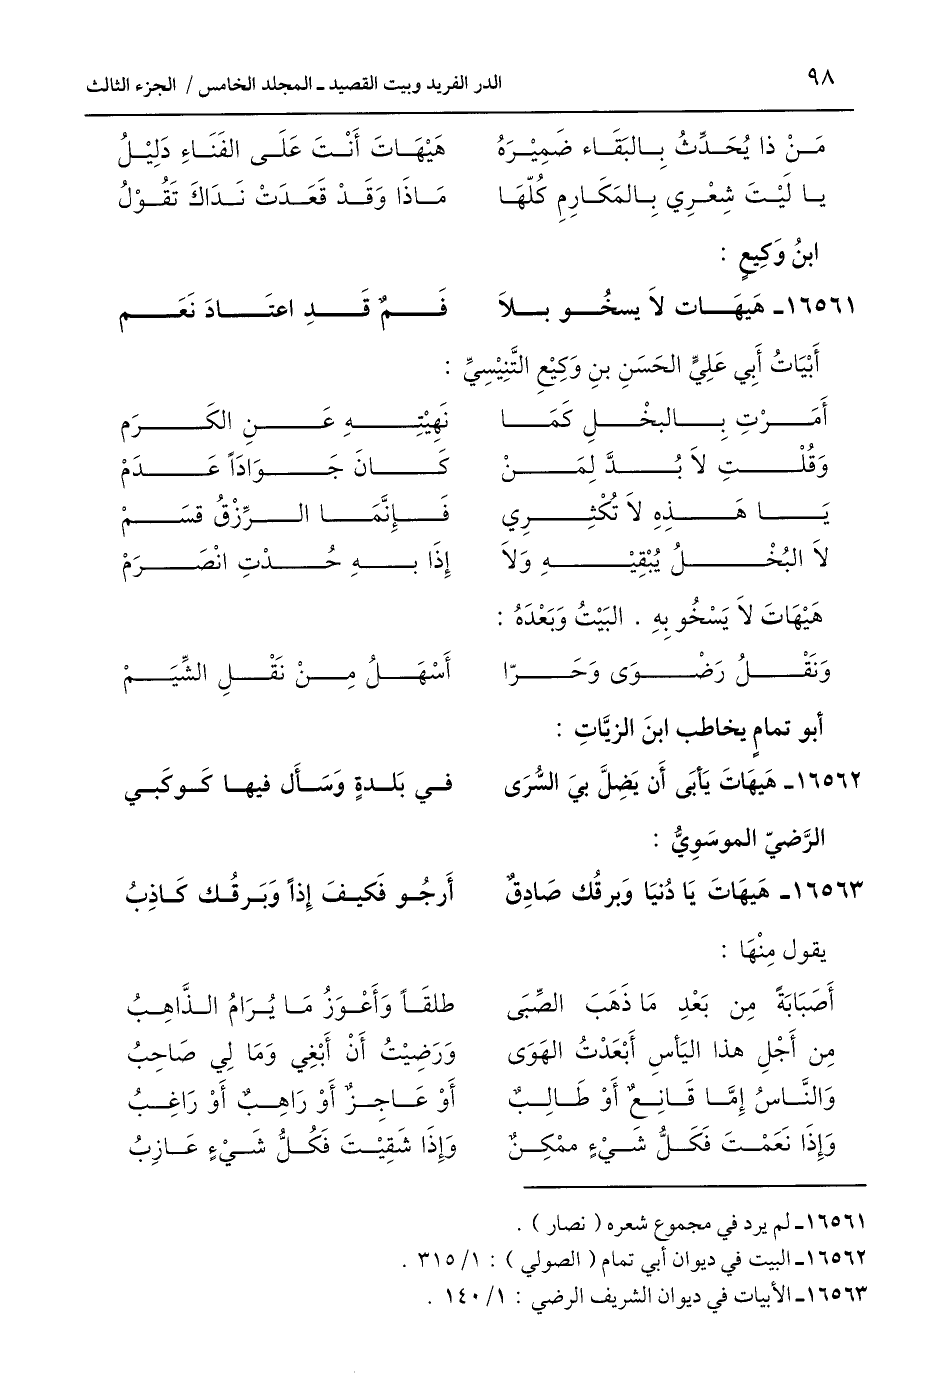 ٩٨ الدر الفريد وبيت القصيد ـ المجلد الخامس / الجزء الثالث
مَنْ ذا يُحَدِّثُ بِالبَقَاء ضَمِيْرَهُ هَيْهَاتَ أَنْتَ عَلَى الفَنَاءِ دَلِيْلُ
يا لَيْتَ شِعْرِي بِالمَكَارِمِ كُلّهَا مَاذَا وَقَدْ قَعَدَتْ نَدَاكَ تَقُوْلُ
ابنُ وَكِيعٍ :
١٦٥٦١ـ هَيهَات لاَ يسخُو بلاَ فَمٌ قَدِ اعتَادَ نَعَم
أَبْيَاتُ أَبِي عَلِيٍّ الحَسَنِ بنِ وَكِيْعِ التَّنِيْسِيِّ :
أَمَرْتِ بِالبخْلِ كَمَا نَهِيْتِهِ عَنِ الكَرَمِ
وَقُلْتِ لاَ بُدَّ لِمَنْ كَانَ جَوَادَاً عَدَمْ
يَا هَذِهِ لاَ تُكْثِرِي فَإِنَّمَا الرِّزْقُ قسَمْ
لاَ البُخْلُ يُبْقِيْهِ وَلاَ إِذَا بهِ حُدْتِ انْصَرَمْ
هَيْهَاتَ لاَ يَسْخُو بِهِ . البَيْتُ وَبَعْدَهُ :
وَنَقْلُ رَضْوَى وَحَرّا أَسْهَلُ مِنْ نَقْلِ الشِّيَمْ
أبو تمامٍ يخاطب ابنَ الزيَّاتِ :
١٦٥٦٢ـ هَيهَاتَ يَأبَى أن يَضِلَّ بيَ السُّرَى في بَلدةٍ وَسَأل فيها كَوكَبي
الرَّضيّ الموسَوِيُّ :
١٦٥٦٣ـ هَيهَاتَ يَا دُنيَا وَبرقُك صَادِقٌ أَرجُو فَكيفَ إذاً وَبَرقُك كَاذِبُ
يقول مِنْهَا :
أَصَبَابَةً مِن بَعْدِ مَا ذَهَبَ الصِّبَى طلقَاً وَأَعْوَزُ مَا يُرَامُ الذَّاهِبُ
مِن أَجْلِ هذا اليَأسِ أَبْعَدْتُ الهَوَى وَرَضِيْتُ أَنْ أَبْغِي وَمَا لِي صَاحِبُ
وَالنَّاسُ إِمَّا قَانِعٌ أَوْ طَالِبٌ أَوْ عَاجِزٌ أَوْ رَاهِبٌ أَوْ رَاغِبُ
وَإِذَا نَعَمْتَ فَكَلُّ شَيْءٍ ممْكِنٌ وَإِذَا شَقِيْتَ فَكُلُّ شَيْءٍ عَازِبُ
١٦٥٦١ـ لم يرد في مجموع شعره ( نصار ) .
١٦٥٦٢ـ البيت في ديوان أبي تمام ( الصولي ) : ١/ ٣١٥ .
١٦٥٦٣ـ الأبيات في ديوان الشريف الرضي : ١/ ١٤٠ .